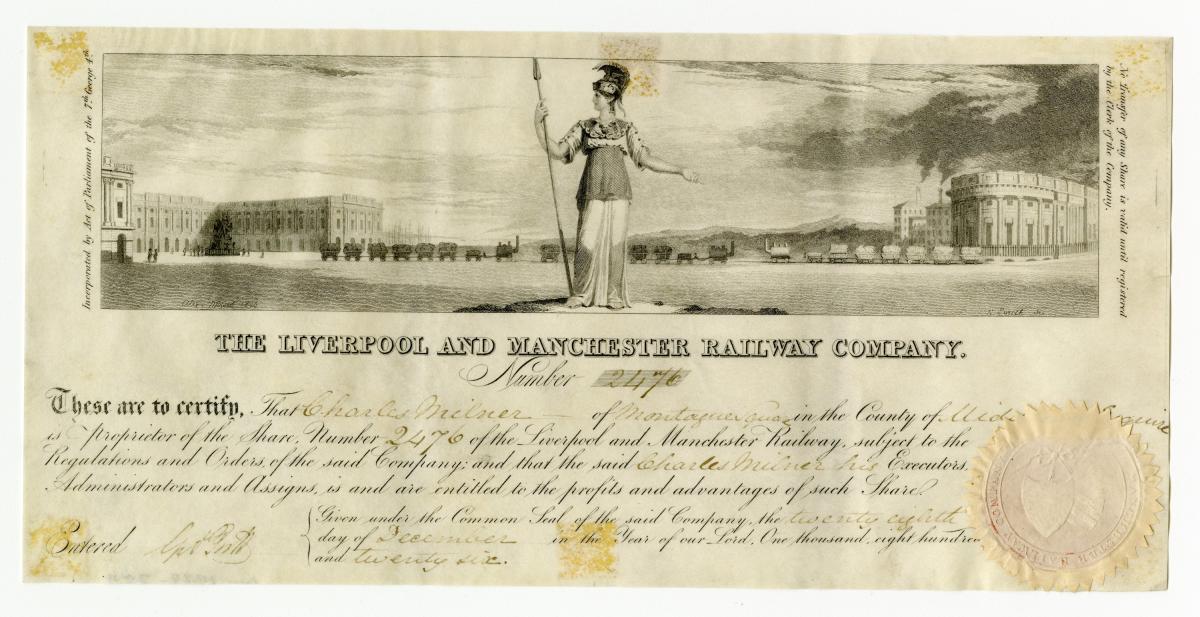 Incorporated by Act of Parliament of the 7th George 4th
No Transfer of any Share is valid until registered
by the Clerk of the Company.
THE LIVERPOOL AND MANCHESTER RAILWAY COMPANY.
Number 2476
These are to certify, That Charles Milner — of Montague in the County of
is Proprietor of the Share, Number 2476 of the Liverpool and Manchester Railway, subject to the
Regulations and Orders, of the said Company; and that the said Charles Milner his Executors,
Administrators and Assigns, is and are entitled to the profits and advantages of such Share.
Given under the Common Seal of the said Company, the twenty eighth
day of December in the Year of our Lord, One thousand, eight hundred
and twenty six.
Entered